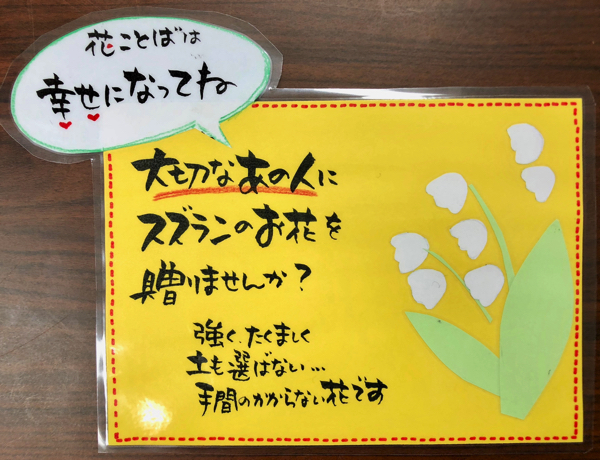 花ことばは
幸せになってね
大切なあの人に
スズランのお花を
贈りませんか?
強く、たくましく
土も選ばない…
手間のかからない花です